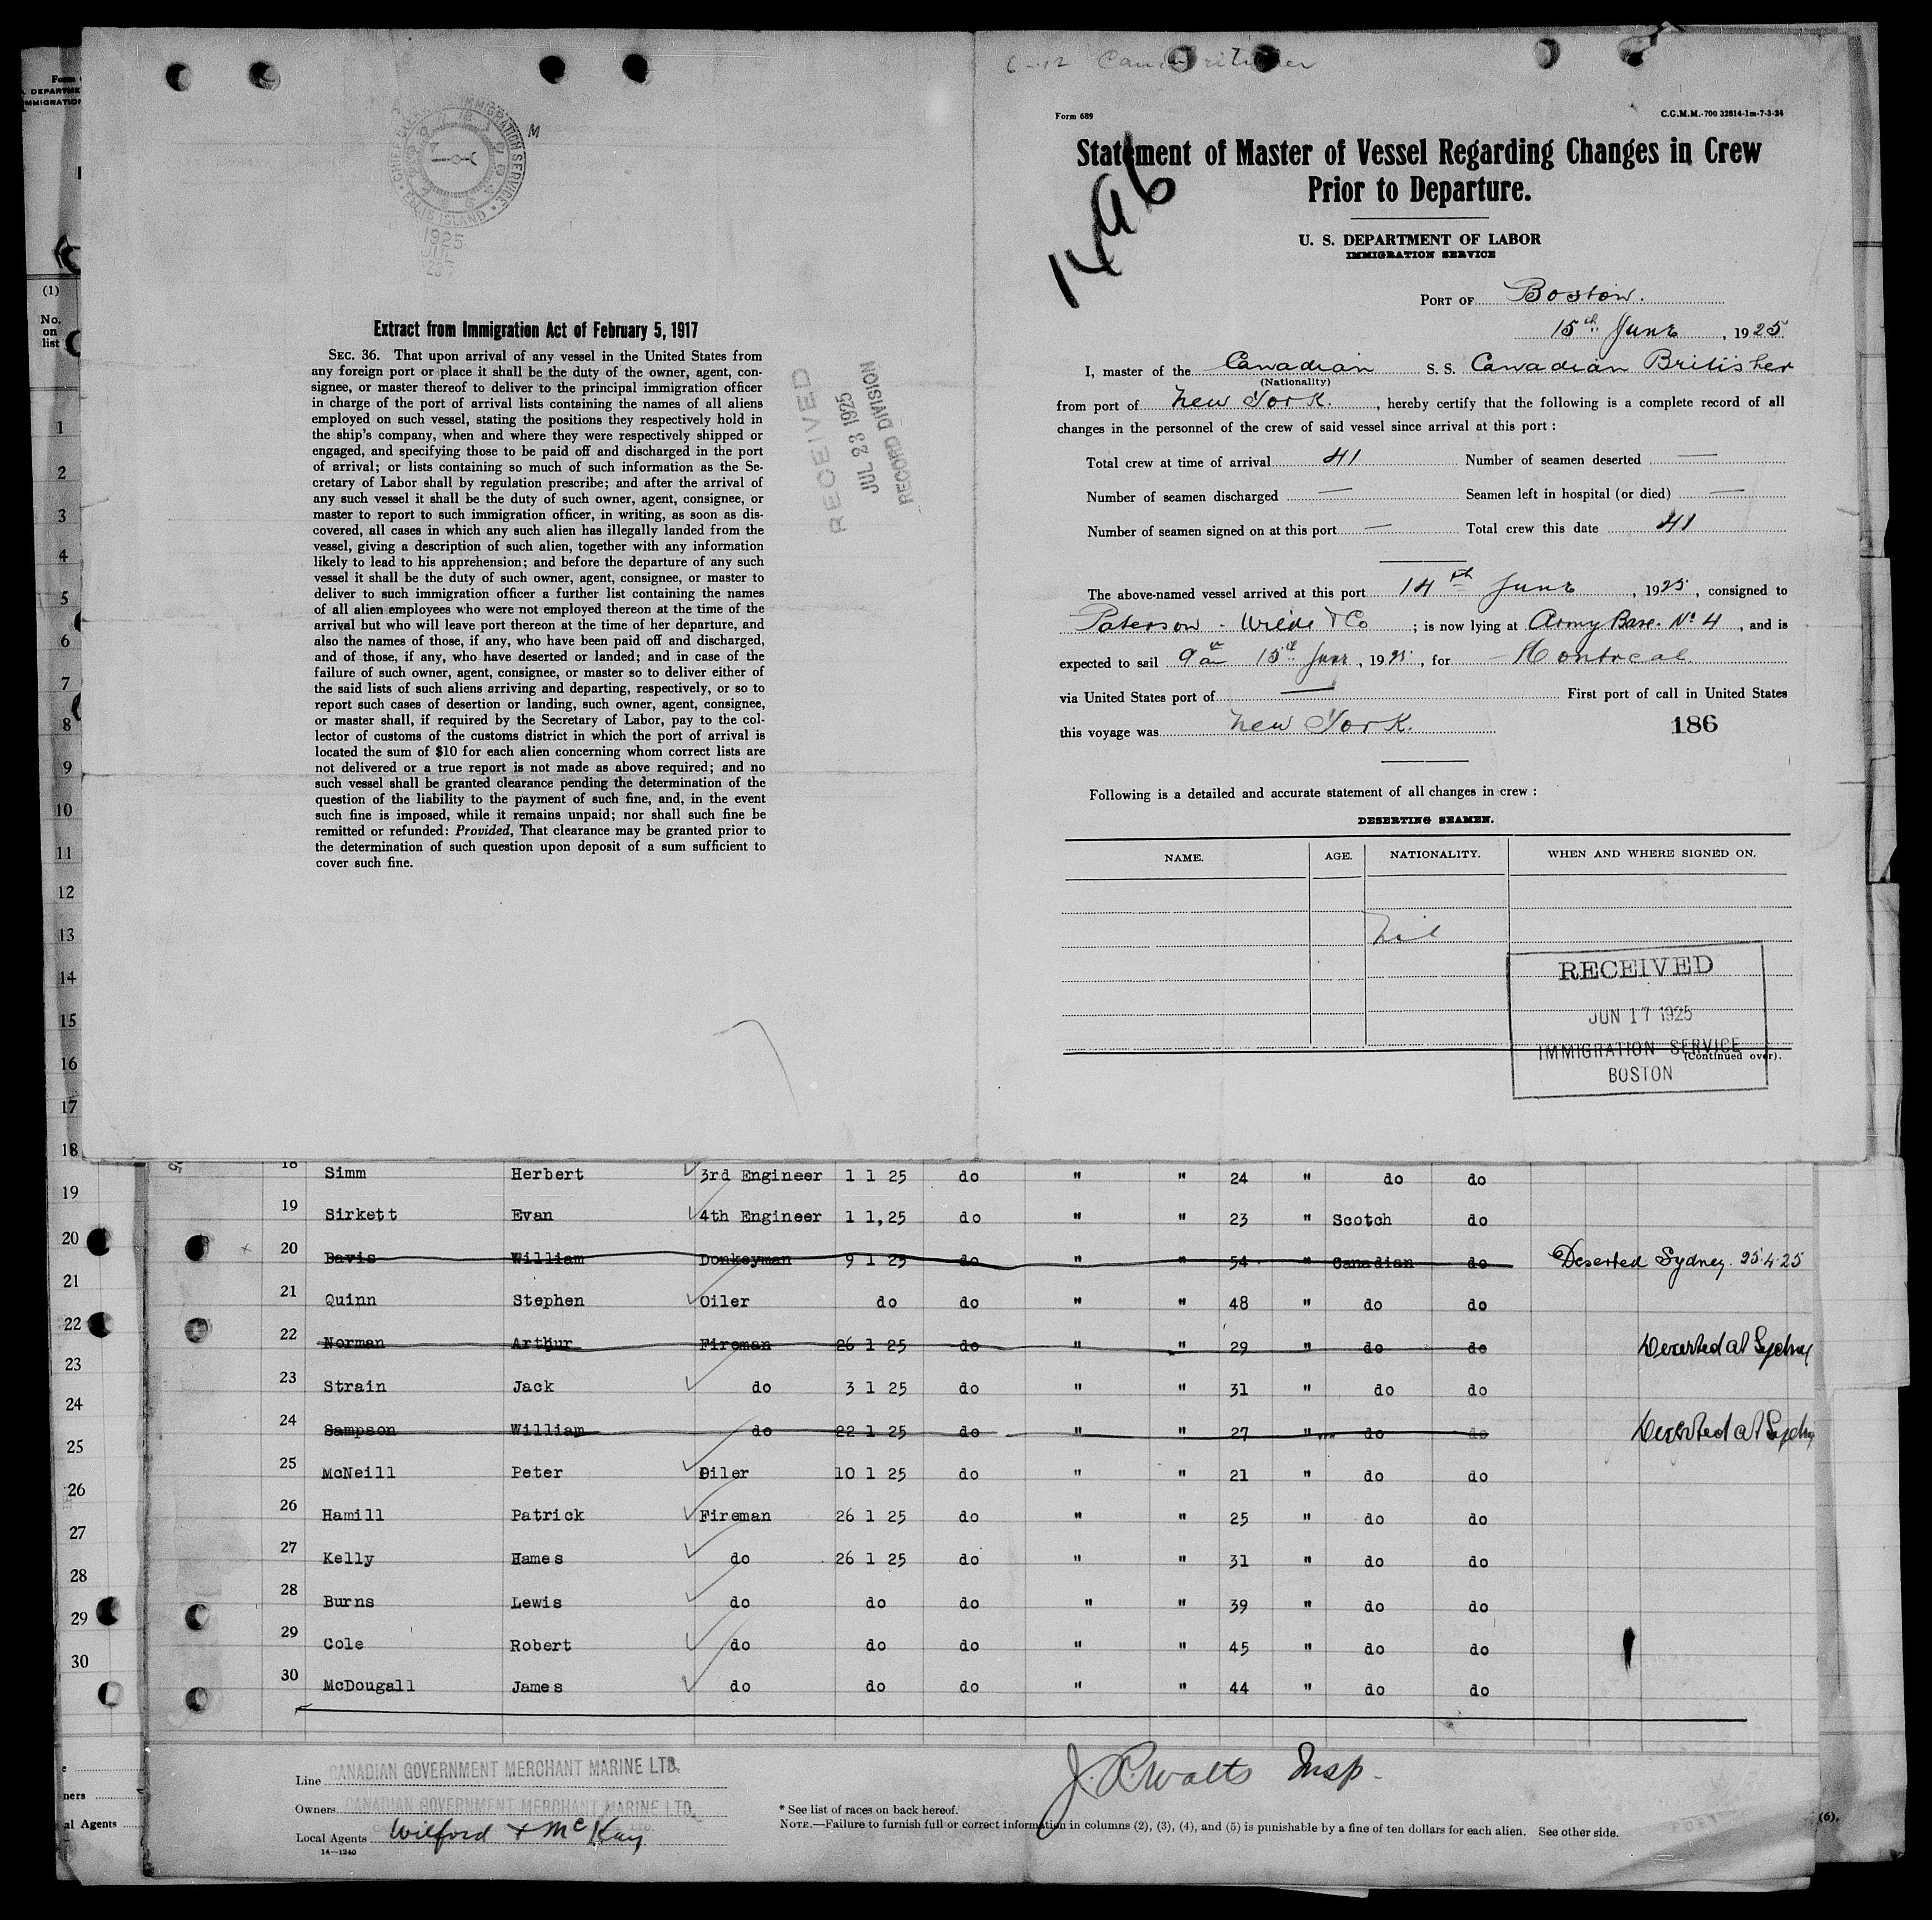 Form 689
C.G.M.M.-700 32814-1m-7-3-24
1496
Statement of Master of Vessel Regarding Changes in Crew
Prior to Departure.
U. S. DEPARTMENT OF LABOR
IMMIGRATION SERVICE
PORT OF Boston.
15th June, 1925
I, master of the Canadian S. S. Canadian Britisher
(Nationality)
from port of New York., hereby certify that the following is a complete record of all
changes in the personnel of the crew of said vessel since arrival at this port :
Total crew at time of arrival 41 Number of seamen deserted —
Number of seamen discharged — Seamen left in hospital (or died) —
Number of seamen signed on at this port — Total crew this date 41
The above-named vessel arrived at this port 14th June, 1925, consigned to
Paterson - Wilde & Co ; is now lying at Army Base. No 4, and is
expected to sail 9am 15th June, 1925, for Montreal.
via United States port of — First port of call in United States
this voyage was New York.
186
Following is a detailed and accurate statement of all changes in crew :
DESERTING SEAMEN.
NAME. AGE. NATIONALITY. WHEN AND WHERE SIGNED ON.
Nil
RECEIVED
JUN 17 1925
IMMIGRATION SERVICE
BOSTON
(Continued over).
CHIEF IMMIGRATION SERVICE
ELLIS ISLAND
M
1925
Extract from Immigration Act of February 5, 1917
SEC. 36. That upon arrival of any vessel in the United States from
any foreign port or place it shall be the duty of the owner, agent, con-
signee, or master thereof to deliver to the principal immigration officer
in charge of the port of arrival lists containing the names of all aliens
employed on such vessel, stating the positions they respectively hold in
the ship's company, when and where they were respectively shipped or
engaged, and specifying those to be paid off and discharged in the port
of arrival; or lists containing so much of such information as the Se-
cretary of Labor shall by regulation prescribe; and after the arrival of
any such vessel it shall be the duty of such owner, agent, consignee, or
master to report to such immigration officer, in writing, as soon as dis-
covered, all cases in which any such alien has illegally landed from the
vessel, giving a description of such alien, together with any information
likely to lead to his apprehension; and before the departure of any such
vessel it shall be the duty of such owner, agent, consignee, or master to
deliver to such immigration officer a further list containing the names
of all alien employees who were not employed thereon at the time of the
arrival but who will leave port thereon at the time of her departure, and
also the names of those, if any, who have been paid off and discharged,
and of those, if any, who have deserted or landed; and in case of the
failure of such owner, agent, consignee, or master so to deliver either of
the said lists of such aliens arriving and departing, respectively, or so to
report such cases of desertion or landing, such owner, agent, consignee,
or master shall, if required by the Secretary of Labor, pay to the col-
lector of customs of the customs district in which the port of arrival is
located the sum of $10 for each alien concerning whom correct lists are
not delivered or a true report is not made as above required; and no
such vessel shall be granted clearance pending the determination of the
question of the liability to the payment of such fine, and, in the event
such fine is imposed, while it remains unpaid; nor shall such fine be
remitted or refunded: Provided, That clearance may be granted prior to
the determination of such question upon deposit of a sum sufficient to
cover such fine.
RECEIVED
JUL 23 1925
RECORD DIVISION
(1)
No.
on
list
1
2
3
4
5
6
7
8
9
10
11
12
13
14
15
16
17
18
19
20
21
22
23
24
25
26
27
28
29
30
18 Simm Herbert 3rd Engineer 1 1 25 do " " 24 " do do
19 Sirkett Evan 4th Engineer 1 1,25 do " " 23 " Scotch do
20 Davis William Donkeyman 9 1 25 do " " 54 " Canadian do Deserted Sydney. 25.4.25
21 Quinn Stephen Oiler do do " " 48 " do do
22 Norman Arthur Fireman 26 1 25 do " " 29 " do do Deserted at Sydney
23 Strain Jack do 3 1 25 do " " 31 " do do
24 Sampson William do 22 1 25 do " " 27 " do do Deserted at Sydney
25 McNeill Peter Oiler 10 1 25 do " " 21 " do do
26 Hamill Patrick Fireman 26 1 25 do " " 25 " do do
27 Kelly Hames do 26 1 25 do " " 31 " do do
28 Burns Lewis do do do " " 39 " do do
29 Cole Robert do do do " " 45 " do do
30 McDougall James do do do " " 44 " do do
Line CANADIAN GOVERNMENT MERCHANT MARINE LTD.
Owners CANADIAN GOVERNMENT MERCHANT MARINE LTD.
Local Agents Wilford & McKay
14—1240
J. R. Watts Insp.
* See list of races on back hereof.
NOTE.—Failure to furnish full or correct information in columns (2), (3), (4), and (5) is punishable by a fine of ten dollars for each alien. See other side.
(6).
al Agents